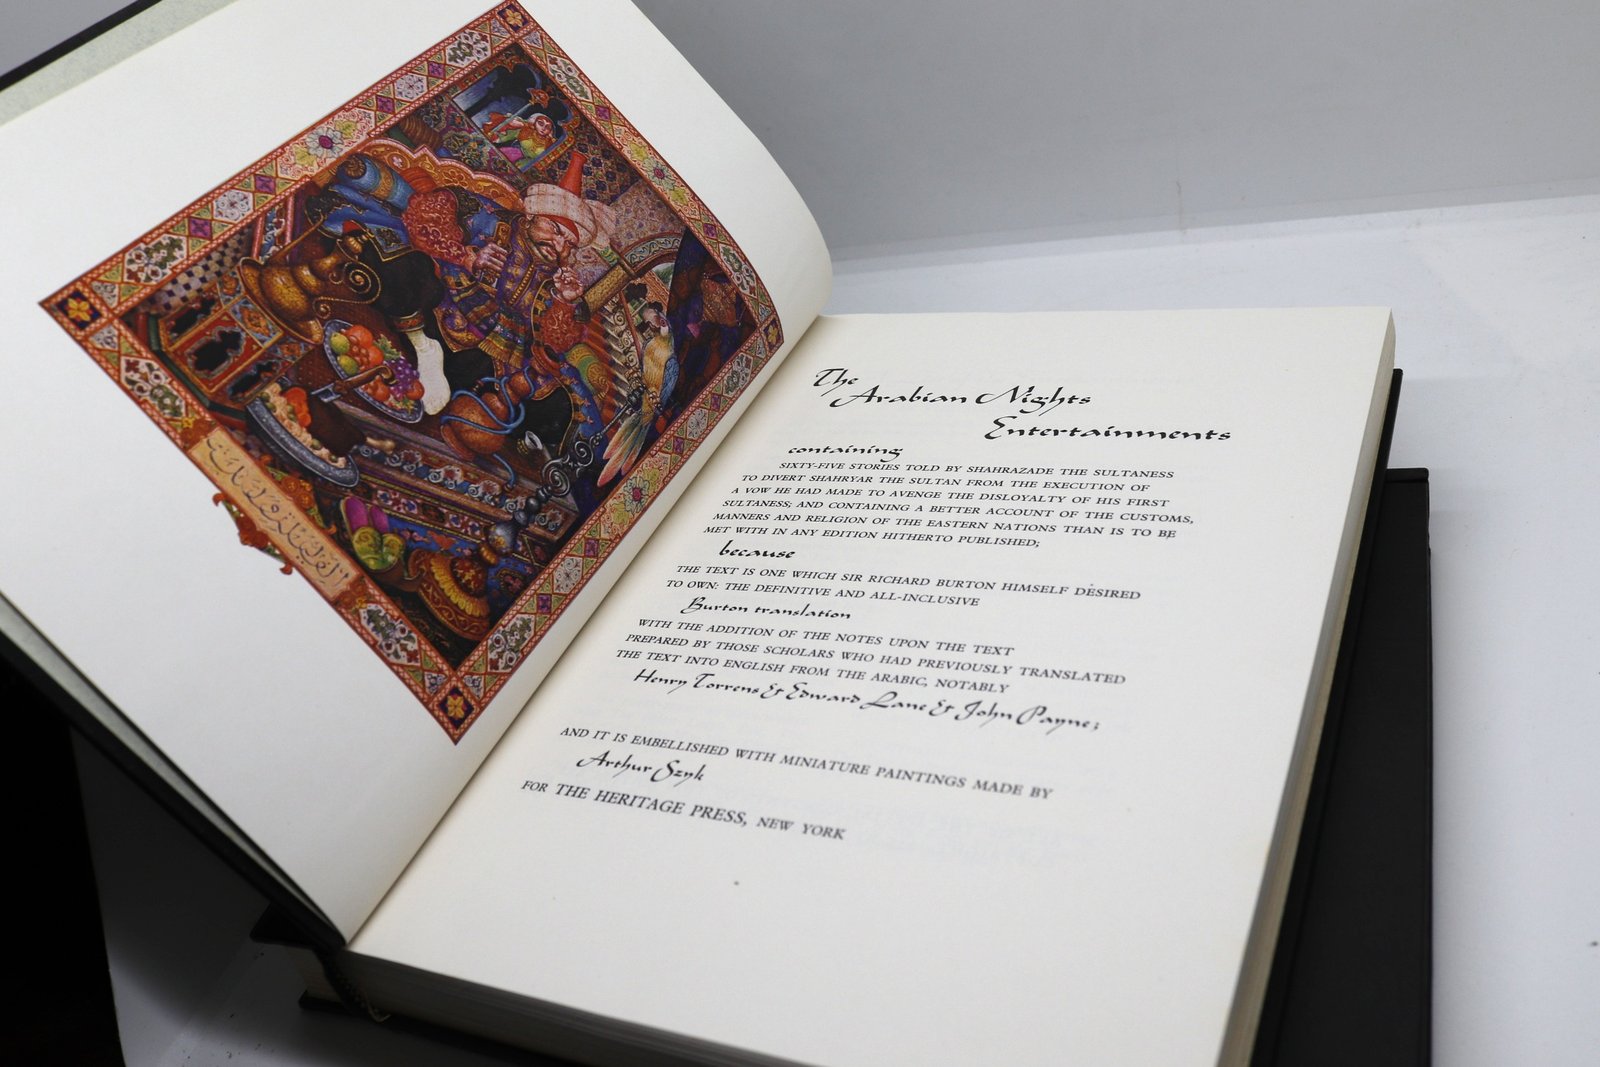 The
Arabian Nights
Entertainments
containing
SIXTY-FIVE STORIES TOLD BY SHAHRAZADE THE SULTANESS
TO DIVERT SHAHRYAR THE SULTAN FROM THE EXECUTION OF
A VOW HE HAD MADE TO AVENGE THE DISLOYALTY OF HIS FIRST
SULTANESS; AND CONTAINING A BETTER ACCOUNT OF THE CUSTOMS,
MANNERS AND RELIGION OF THE EASTERN NATIONS THAN IS TO BE
MET WITH IN ANY EDITION HITHERTO PUBLISHED;
because
THE TEXT IS ONE WHICH SIR RICHARD BURTON HIMSELF DESIRED
TO OWN: THE DEFINITIVE AND ALL-INCLUSIVE
Burton translation
WITH THE ADDITION OF THE NOTES UPON THE TEXT
PREPARED BY THOSE SCHOLARS WHO HAD PREVIOUSLY TRANSLATED
THE TEXT INTO ENGLISH FROM THE ARABIC, NOTABLY
Henry Torrens & Edward Lane & John Payne;
AND IT IS EMBELLISHED WITH MINIATURE PAINTINGS MADE BY
Arthur Szyk
FOR THE HERITAGE PRESS, NEW YORK